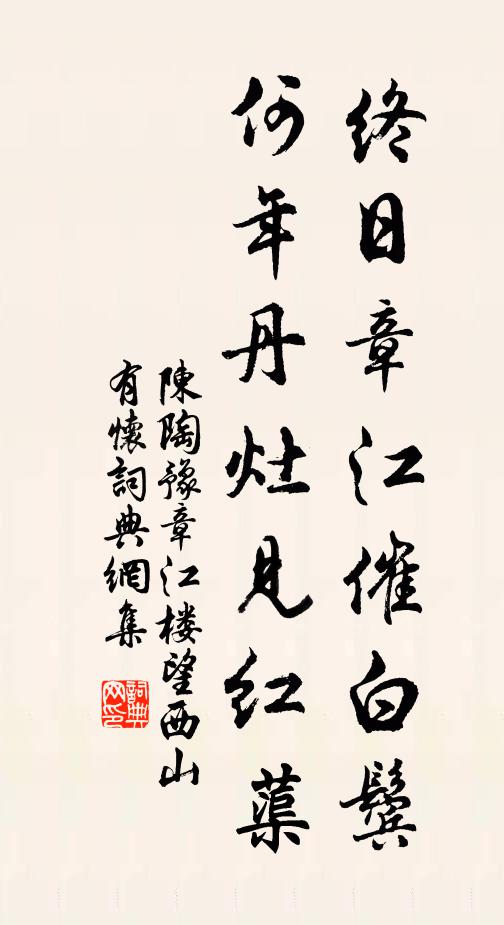 終日章江催白鬓
何年丹灶見红蕖
陳陶豫章江楼望西山
有懷詞典網集
詞典网印